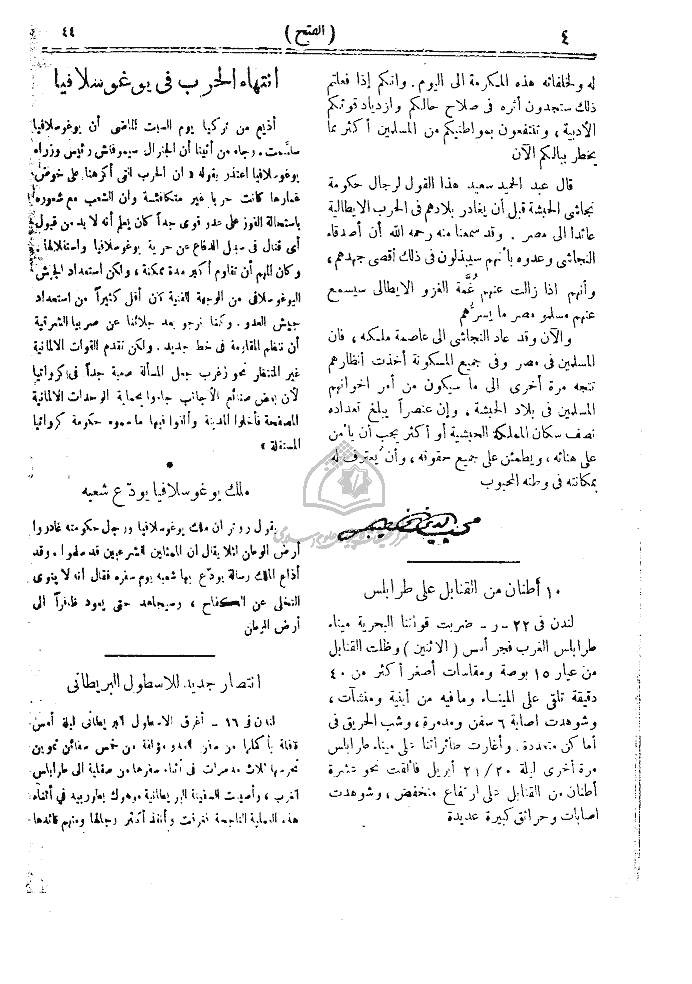 ٤
( الفتح )
٤٤
له ولخلفائه هذه المكرمة الى اليوم . وانكم إذا فعلتم
ذلك ستجدون أثره فى صلاح حالكم وازدياد قوتكم
الأدبية ، وتنتفعون بمواطنيكم من المسلمين أكثر مما
يخطر ببالكم الآن
قال عبد الحميد سعيد هذا القول لرجال حكومة
نجاشى الحبشة قبل أن يغادر بلادهم فى الحرب الايطالية
عائدا الى مصر . وقد سمعنا منه رحمه الله أن أصدقاء
النجاشى وعدوه بأنهم سيبذلون فى ذلك أقصى جهدهم ،
وأنهم اذا زالت عنهم غُمَّة الغزو الايطالى سيسمع
عنهم مسلمو مصر ما يسرهم
والآن وقد عاد النجاشى الى عاصمة ملكه ، فان
المسلمين فى مصر وفى جميع المسكونة أخذت أنظارهم
تتجه مرة أخرى الى ما سيكون من أمر اخوانهم
المسلمين فى بلاد الحبشة . وإن عنصراً يبلغ تعداده
نصف سكان المملكة الحبشية أو أكثر يجب أن يأمن
على هنائه ، ويطمئن على جميع حقوقه ، وأن يعترف له
بمكانته فى وطنه المحبوب
محب الدين الخطيب
١٠ أطنان من القنابل على طرابلس
لندن فى ٢٢ – ر – ضربت قواتنا البحرية ميناء
طرابلس الغرب فجر أمس ( الاثنين ) وظلت القنابل
من عيار ١٥ بوصة ومقاسات أصغر أكثر من ٤٠
دقيقة تلقى على الميناء وما فيه من أبنية ومنشآت ،
وشوهدت اصابة ٦ سفن ومدمرة ، وشب الحريق فى
أماكن متعددة . وأغارت طائراتنا على ميناء طرابلس
مرة أخرى ليلة ٢١/٢٠ أبريل فألقت نحو عشرة
أطنان من القنابل على ارتفاع منخفض ، وشوهدت
اصابات وحرائق كبيرة عديدة
انتهاء الحرب فى يوغوسلافيا
أذيع من تركيا يوم السبت الماضى أن يوغوسلافيا
سلمت . وجاء من أثينا أن الجنرال سيموفتش رئيس وزراء
يوغوسلافيا اعتذر بقوله « ان الحرب التى أكرهنا على خوض
غمارها كانت حربا غير متكافئة وان الشعب مع شعوره
باستحالة الفوز على عدو قوى جداً كان يعلم أنه لا بد من قبول
أى قتال فى سبيل الدفاع عن حرية يوغوسلافيا واستقلالها .
وكان المهم أن تقاوم أكبر مدة ممكنة ، ولكن استعداد الجيش
اليوغوسلافى من الوجهة الفنية كان أقل كثيراً من استعداد
جيش العدو . وكنا نرجو بعد جلائنا عن صربيا الشرقية
أن تنظم المقاومة فى خط جديد . ولكن تقدم القوات الالمانية
غير المنتظر نحو زغرب جعل المسألة صعبة جداً فى كرواتيا
لأن بعض صنائع الأجانب جاءوا بحماية الوحدات الالمانية
المصفحة فأخلوا المدينة وألفوا فيها ما سموه حكومة كرواتيا
المستقلة »
ملك يوغوسلافيا يودّع شعبه
يقول روتر ان ملك يوغوسلافيا ورجال حكومته غادروا
أرض الوطن لئلا يقال ان الممثلين الشرعيين قد سلموا . وقد
أذاع الملك رسالة يودّع بها شعبه يوم سفره فقال انه لا ينوى
التخلى عن الكفاح ، وسيجاهد حتى يعود ظافراً الى
أرض الوطن
انتصار جديد للاسطول البريطانى
لندن فى ١٦ – أغرق الاسطول البريطانى ليلة أمس
قافلة بأكملها من سفن العدو مؤلفة من خمس سفائن تموين
تحرسها ثلاث مدمرات فى أثناء سفرها من صقلية الى طرابلس
الغرب ، وأصيبت السفينة البريطانية موهوك بطوربيد فى أثناء
هذه العملية الناجحة فغرقت وأنقذ أكثر رجالها ومنهم قائدها